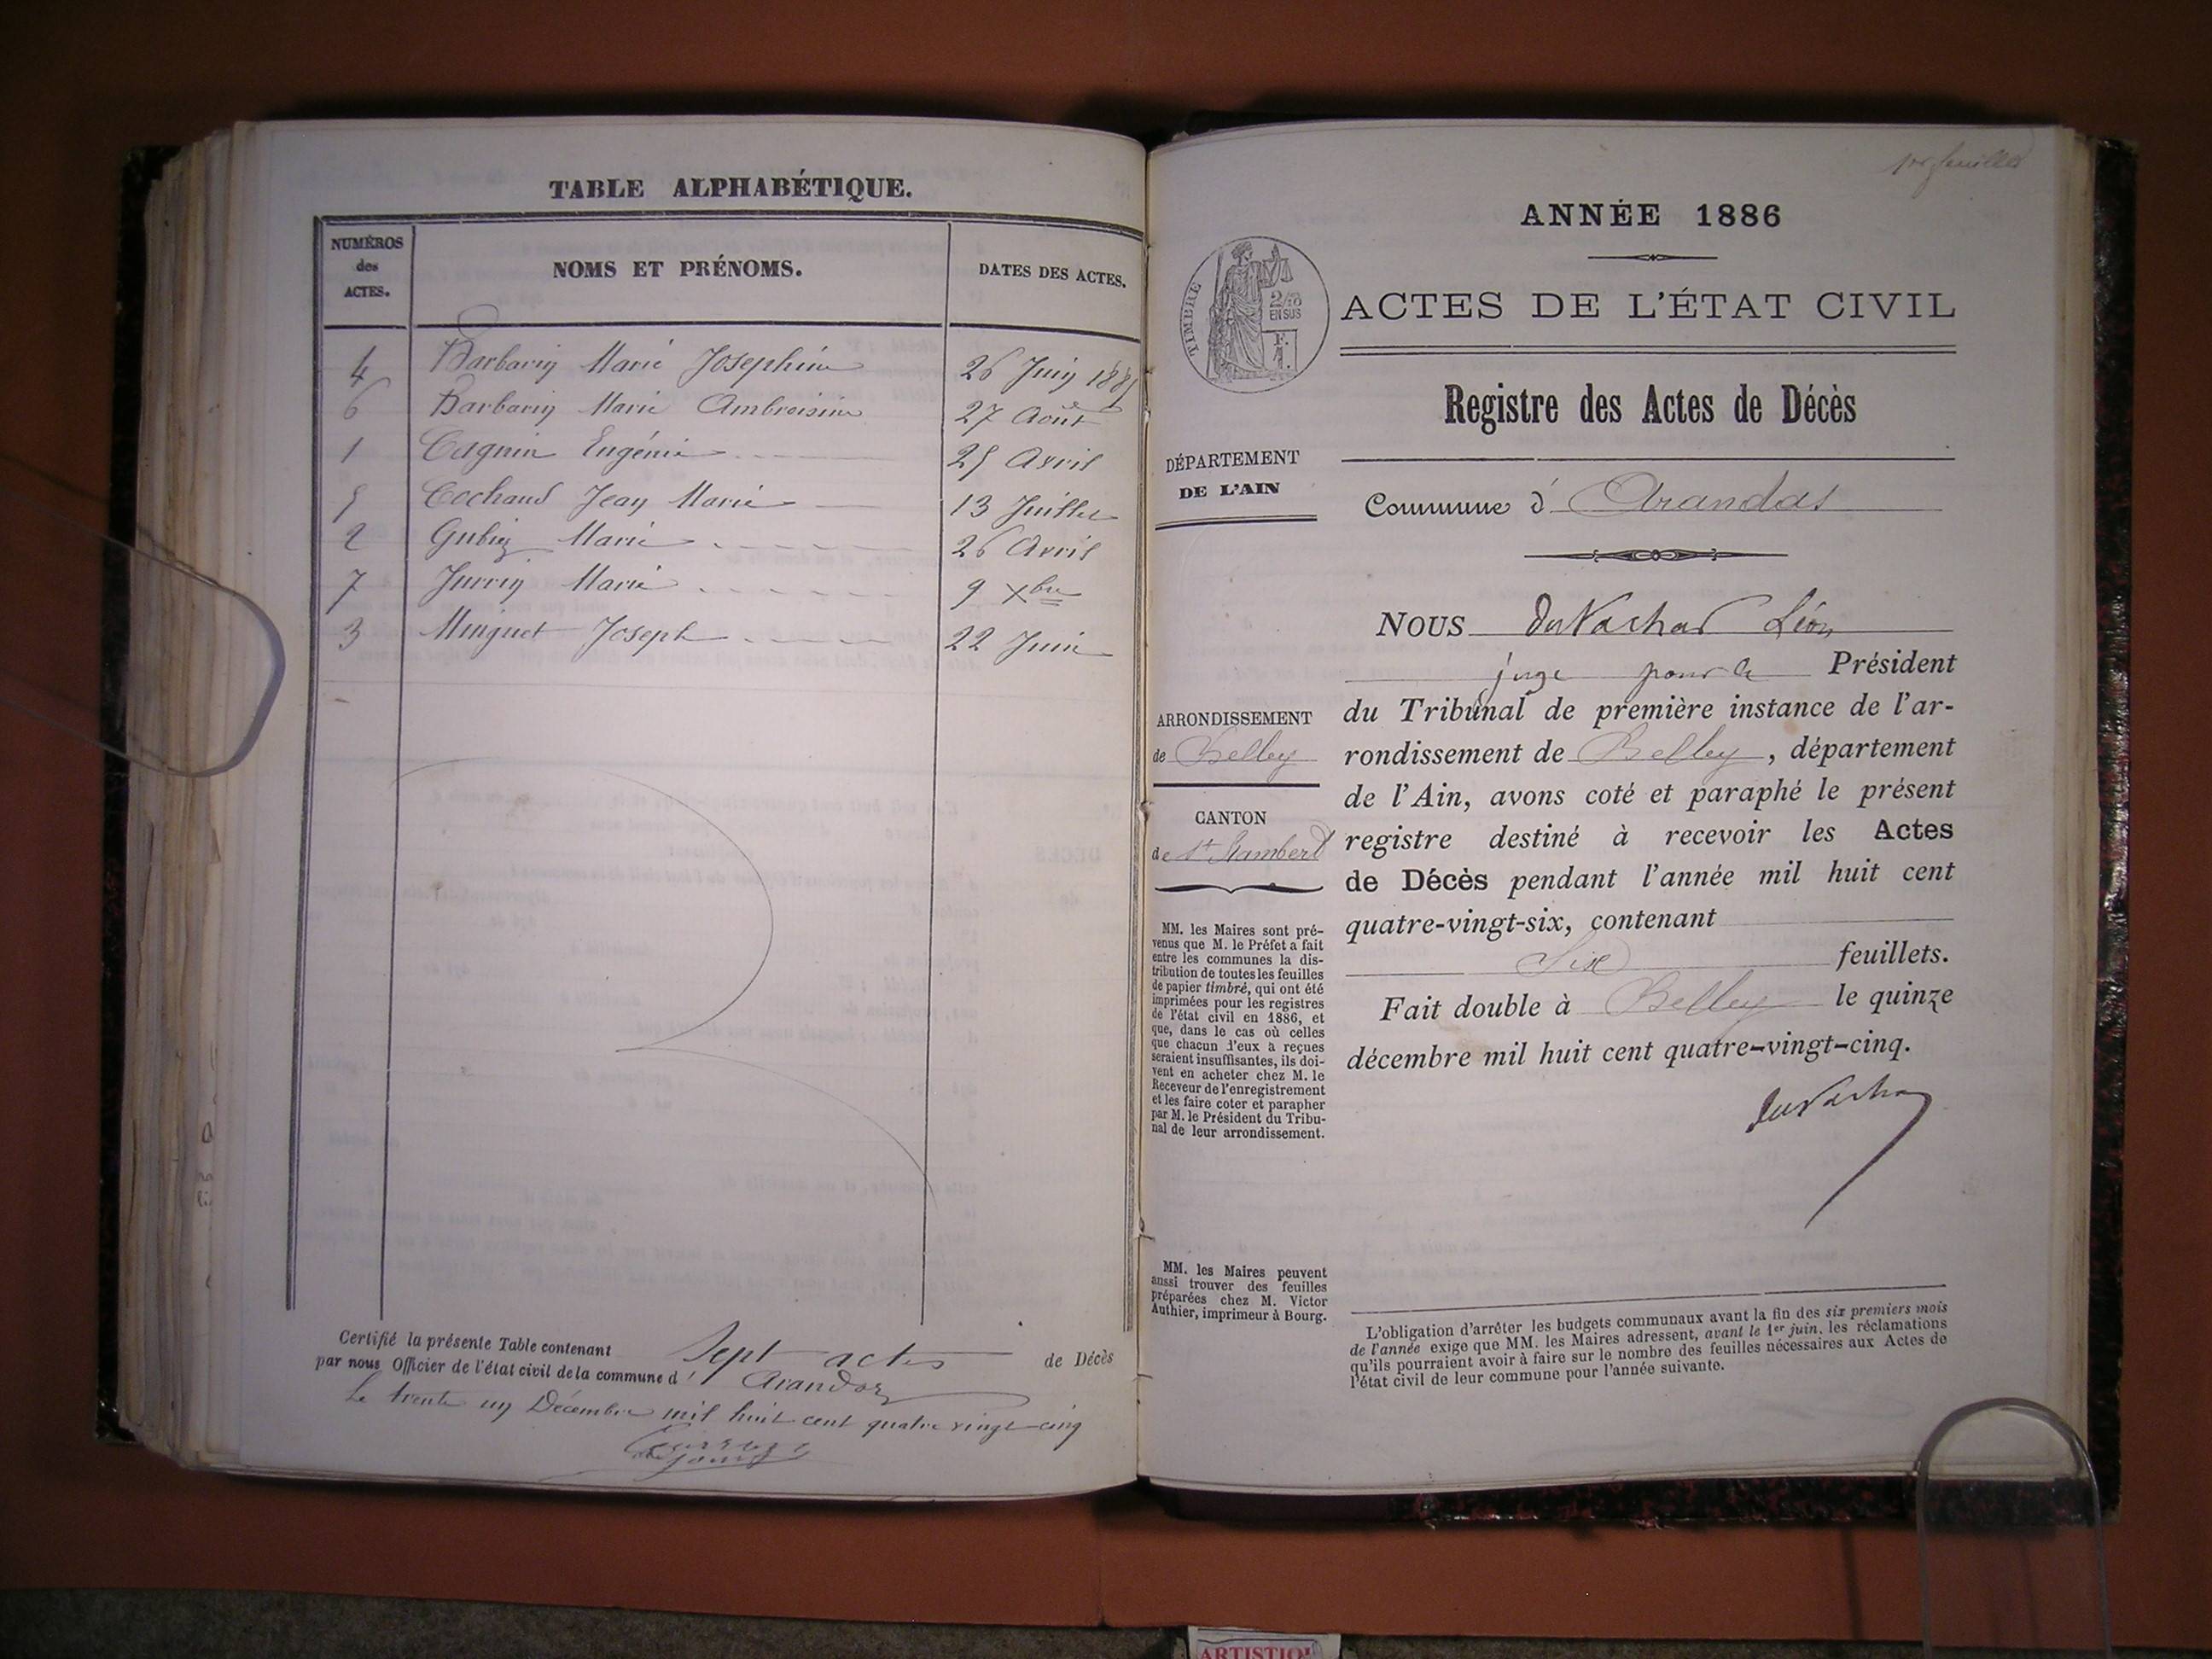 TABLE ALPHABÉTIQUE.
NUMÉROS
des
ACTES.
NOMS ET PRÉNOMS.
DATES DES ACTES.
4 Barbarin Marie Joséphine 26 Juin 1885
6 Barbarin Marie Ambroisine 27 Août
1 Cagnin Eugénie 25 Avril
5 Cochaud Jean Marie 13 Juillet
2 Gubin Marie 26 Avril
7 Jurrin Marie 9 Xbre
3 Minguet Joseph 22 Juin
Certifié la présente Table contenant Sept actes de Décès
par nous Officier de l'état civil de la commune d' Arandas
Le trente un Décembre mil huit cent quatre vingt cinq
1er feuillet
ANNÉE 1886
TIMBRE
2/10
EN SUS
F.
1.
ACTES DE L'ÉTAT CIVIL
Registre des Actes de Décès
DÉPARTEMENT
DE L'AIN
Commune d' Arandas
NOUS duVachat Léon
juge pour le Président
du Tribunal de première instance de l'ar-
rondissement de Belley, département
de l'Ain, avons coté et paraphé le présent
registre destiné à recevoir les Actes
de Décès pendant l'année mil huit cent
quatre-vingt-six, contenant
Six feuillets.
Fait double à Belley le quinze
décembre mil huit cent quatre-vingt-cinq.
duVachat
ARRONDISSEMENT
de Belley
CANTON
de St Rambert
MM. les Maires sont pré-
venus que M. le Préfet a fait
entre les communes la dis-
tribution de toutes les feuilles
de papier timbré, qui ont été
imprimées pour les registres
de l'état civil en 1886, et
que, dans le cas où celles
que chacun d'eux a reçues
seraient insuffisantes, ils doi-
vent en acheter chez M. le
Receveur de l'enregistrement
et les faire coter et parapher
par M. le Président du Tribu-
nal de leur arrondissement.
MM. les Maires peuvent
aussi trouver des feuilles
préparées chez M. Victor
Authier, imprimeur à Bourg.
L'obligation d'arrêter les budgets communaux avant la fin des six premiers mois
de l'année exige que MM. les Maires adressent, avant le 1er juin, les réclamations
qu'ils pourraient avoir à faire sur le nombre des feuilles nécessaires aux Actes de
l'état civil de leur commune pour l'année suivante.